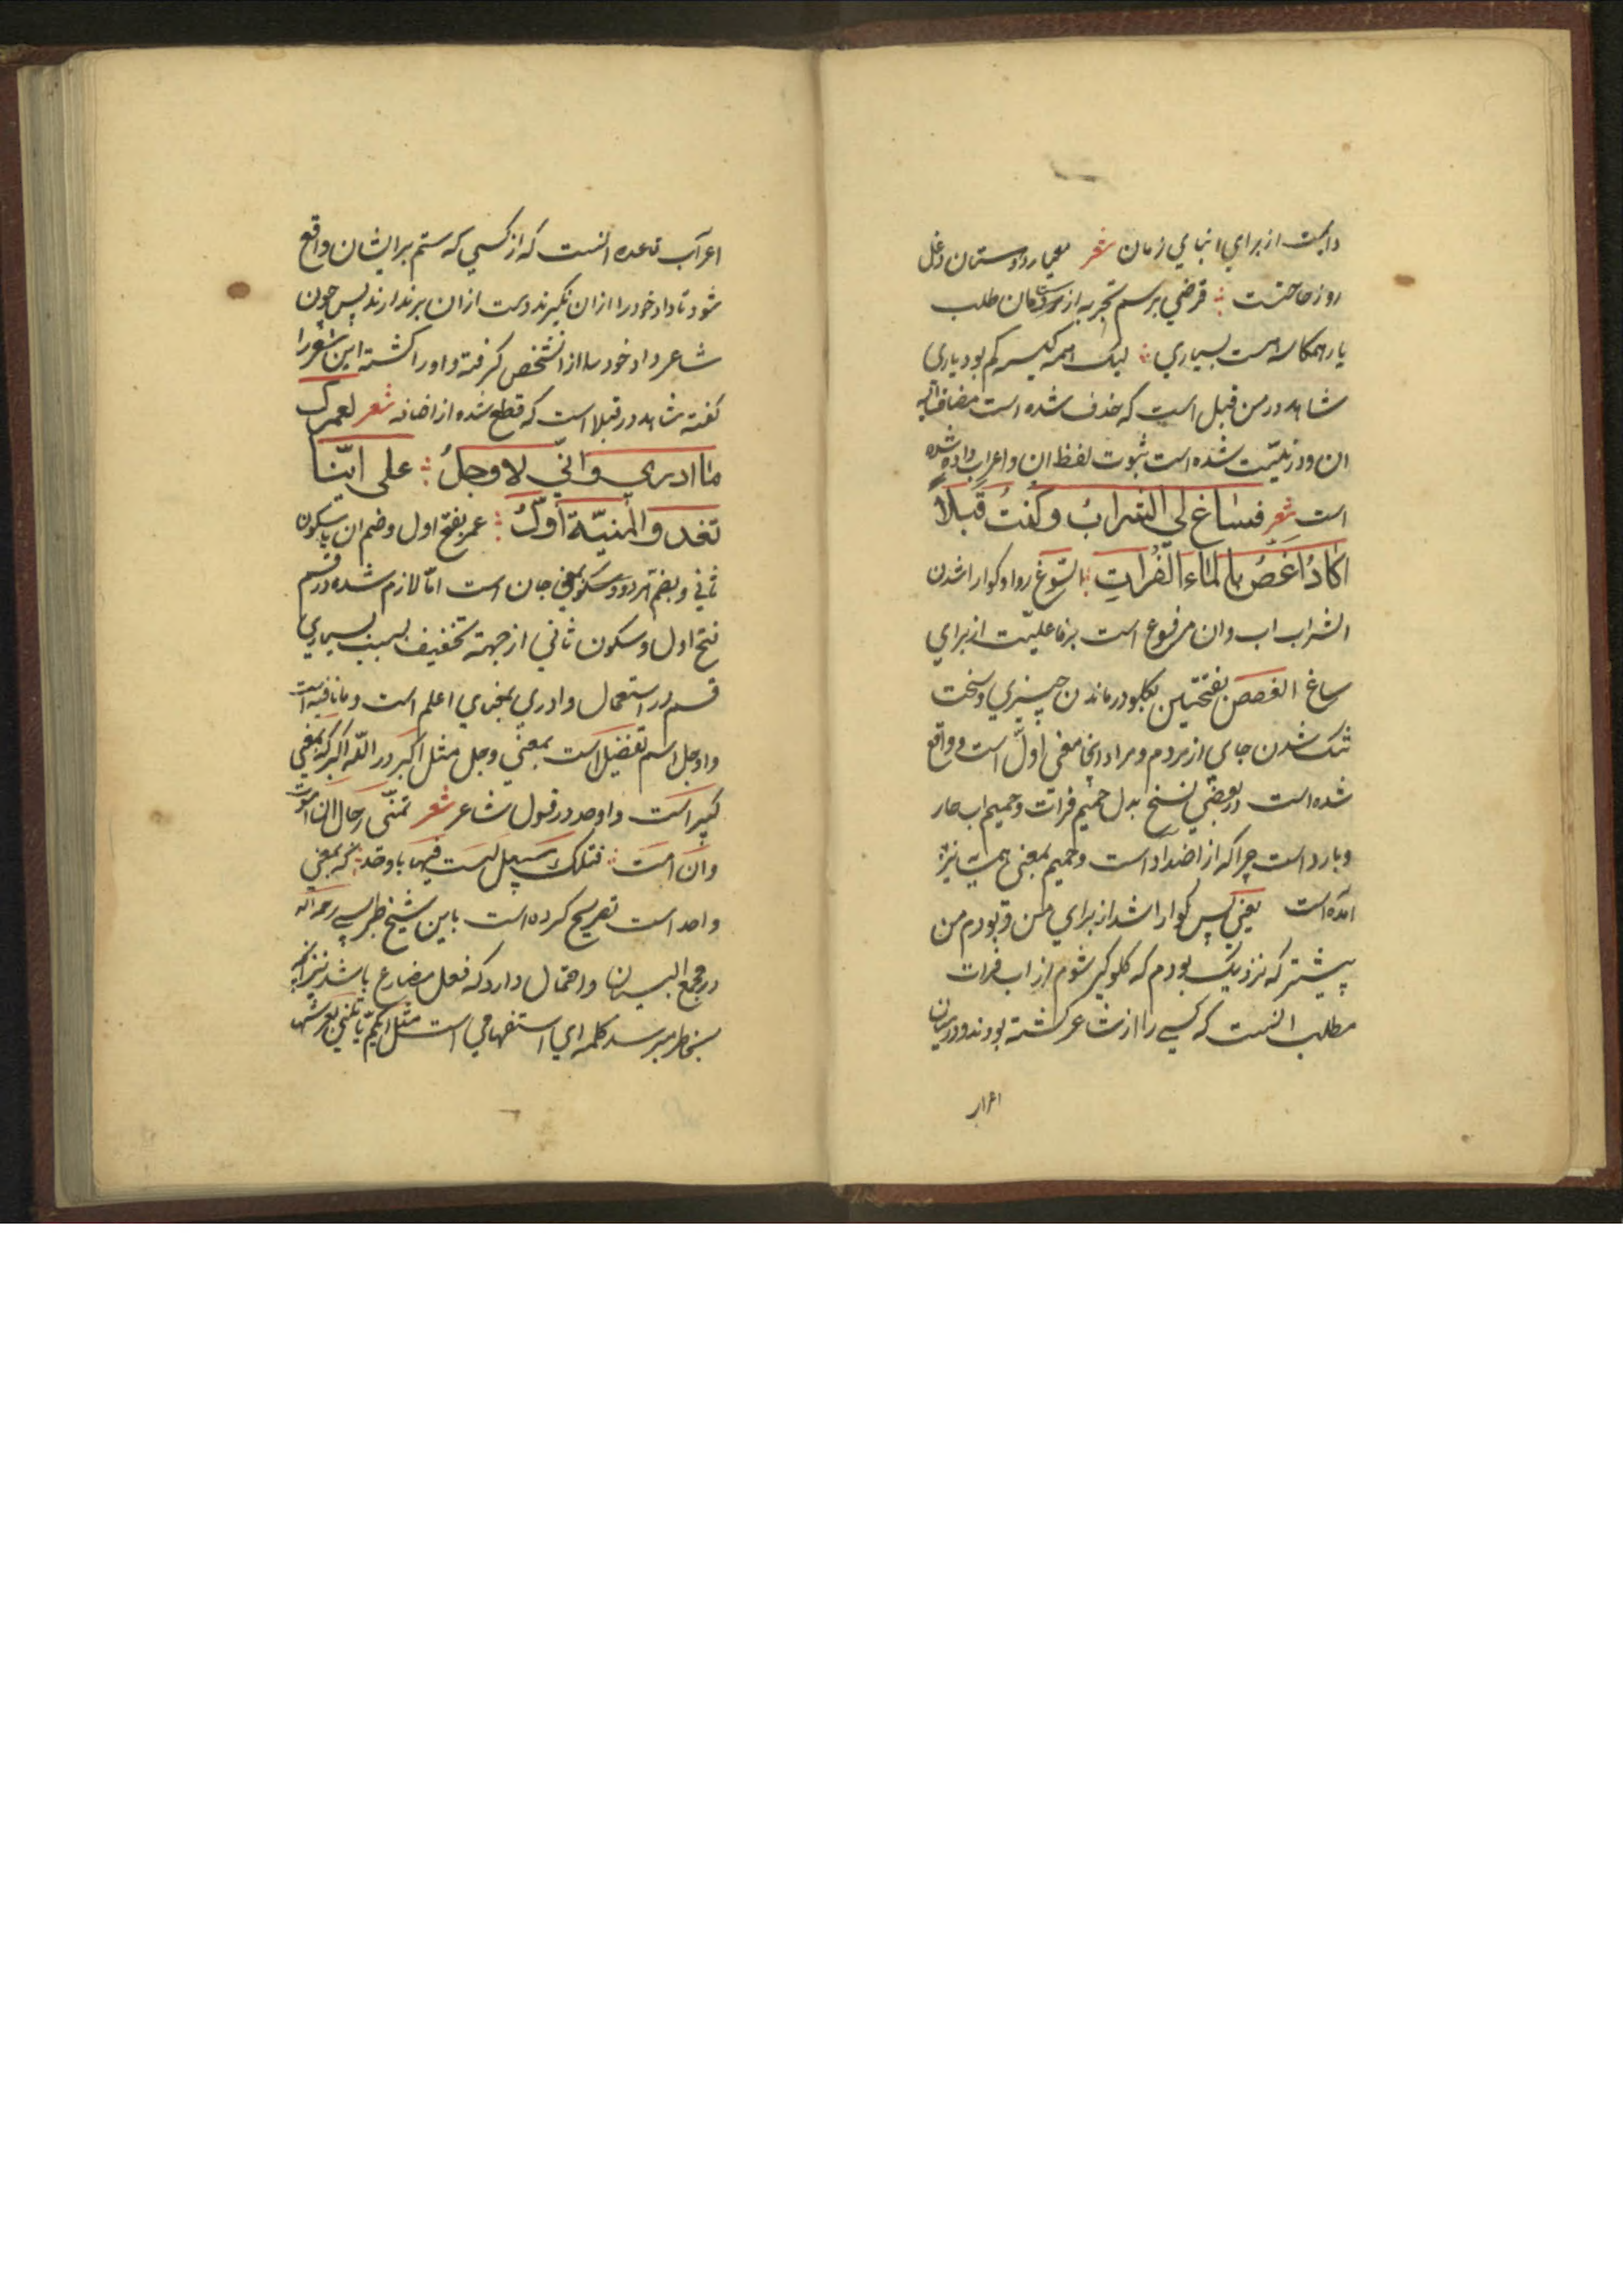 دابت از برای ابنای زمان شعر معیار دوستان دغل
روز حاجتست قرضی برسم تجربه از دوستان طلب
یار همکاسه هست بسیاری لیک همکیسه کم بود یاری
شاهد در من قبل است که حذف شده است مضاف الیه
ان و در نیت شده است ثبوت لفظ ان و اعراب داده شده
است شعر فساغ لي الشرابُ وكنتُ قبلاً
اكادُ اَغَصُ بالماء الفُراتِ السّوغ روا و کوارا شدن
الشراب اب و ان مرفوع است بر فاعلیّت از برای
ساغ الغصص بفتحتین بکلو در ماندن چیزی و سخت
تنک شدن جای از مردم و مراد اینجا معنی اوّل است و واقع
شده است در بعضی نسخ بدل حمیم فرات و حمیم اب حار
و بارد است چراکه از اضداد است و حمیم بمعنی
امده است یعنی پس کوارا شد از برای من و بودم من
پیشتر که نزدیک بودم که کلوکیر شوم از اب فرات
مطلب انست که کسی را از شاعر کشته بودند و در میان
اعراب
اعراب قاعده انست که از کسی که ستم بر ایشان واقع
شود تا داد خود را از ان نکیرند دست از ان برندارند پس چون
شاعر داد خود را از انشخص کرفته و او را کشته این شعر را
کفته شاهد در قبلا است که قطع شده از اضافه شعر لعمرك
ما ادري وانّي لاوجلُ على ايّنا
تغدو المنيّة اوّلُ عمر بفتح اول و ضم ان با سکون
ثانی و بضم هر دو و سکون بمعنی جان است امّا لازم شده در قسم
فتح اول و سکون ثانی از جهة تخفیف بسبب بسیاری
قسم در استعمال و ادری بمعنی اعلم است و ما نافیه است
و اوجل اسم تفضیل است بمعنی وجل مثل اکبر در الله اکبر که بمعنی
کبیر است و اوحد در قول شاعر شعر تمنّى رجال ان اموت
وان امت فتلك سبيل لست فيها باوحد که بمعنی
واحد است تصریح کرده است باین شیخ طبرسی رحمه الله
در مجمع البیان و احتمال دارد که فعل مضارع باشد نیز
بخاطر میرسد کلمه ای استفهامی است مثل ایکم یاتینی بعرشها